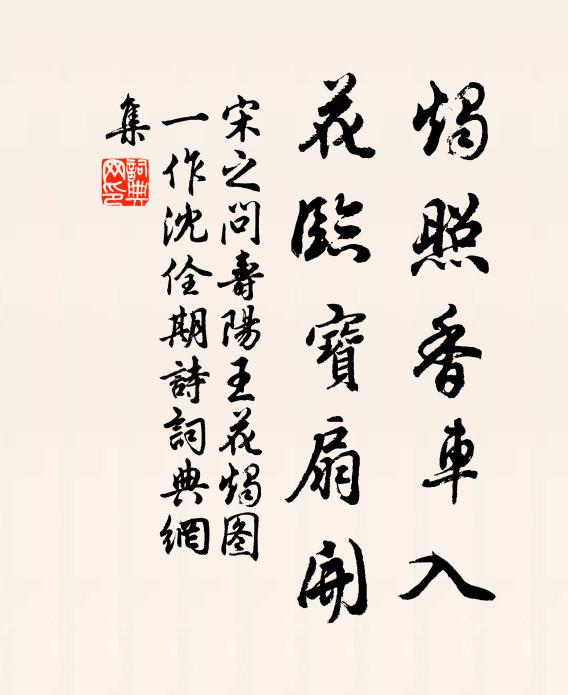 燭照香車入
花臨寶扇開
宋之問壽陽王花燭图
一作沈佺期詩詞典網
集
詞典網印